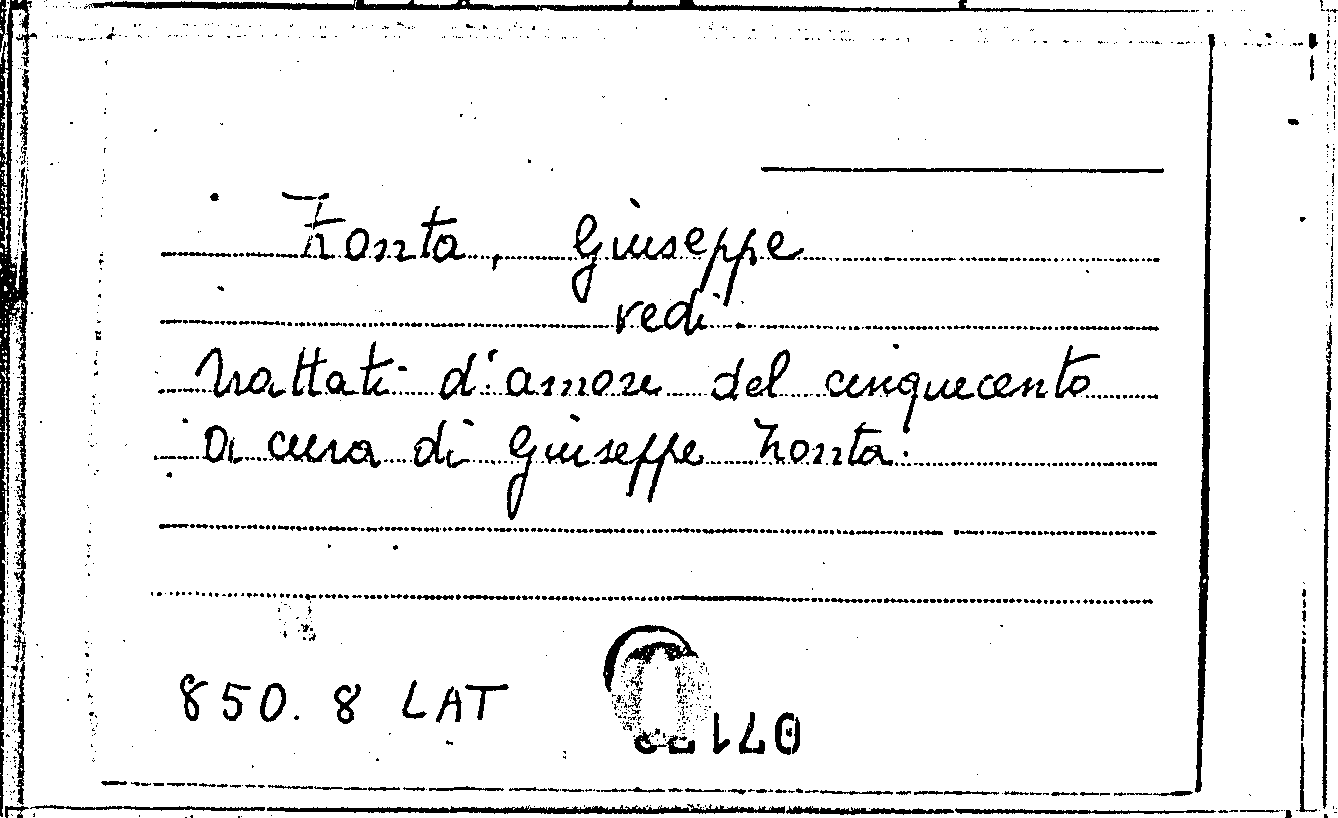 Zonta, Giuseppe
vedi
Trattati d'amore del cinquecento
a cura di Giuseppe Zonta.
850. 8 LAT